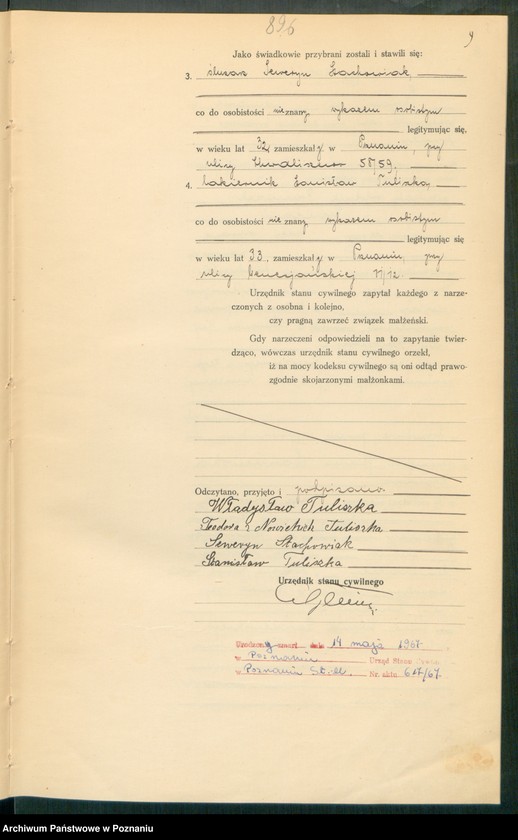 896
9
Jako świadkowie przybrani zostali i stawili się:
3. ślusarz Seweryn Stachowiak
co do osobistości nieznany, wykazem osobistym
legitymując się,
w wieku lat 32, zamieszkały w Poznaniu, przy
ulicy Chwaliszewo 58/59.
4. lakiernik Stanisław Tuliszka,
co do osobistości nieznany, wykazem osobistym
legitymując się
w wieku lat 33, zamieszkały w Poznaniu, przy
ulicy Wenecjańskiej
Urzędnik stanu cywilnego zapytał każdego z narze-
czonych z osobna i kolejno,
czy pragną zawrzeć związek małżeński.
Gdy narzeczeni odpowiedzieli na to zapytanie twier-
dząco, wówczas urzędnik stanu cywilnego orzekł,
iż na mocy kodeksu cywilnego są oni odtąd prawo-
zgodnie skojarzonymi małżonkami.
Odczytano, przyjęto i podpisano
Władysław Tuliszka
Teodora z Tuliszka
Seweryn Stachowiak
Stanisław Tuliszka
Urzędnik stanu cywilnego
zmarł dnia 14 maja 1967
w Poznaniu Urząd Stanu Cywil
w Poznaniu St.-M. Nr. aktu 617/67.
Archiwum Państwowe w Poznaniu